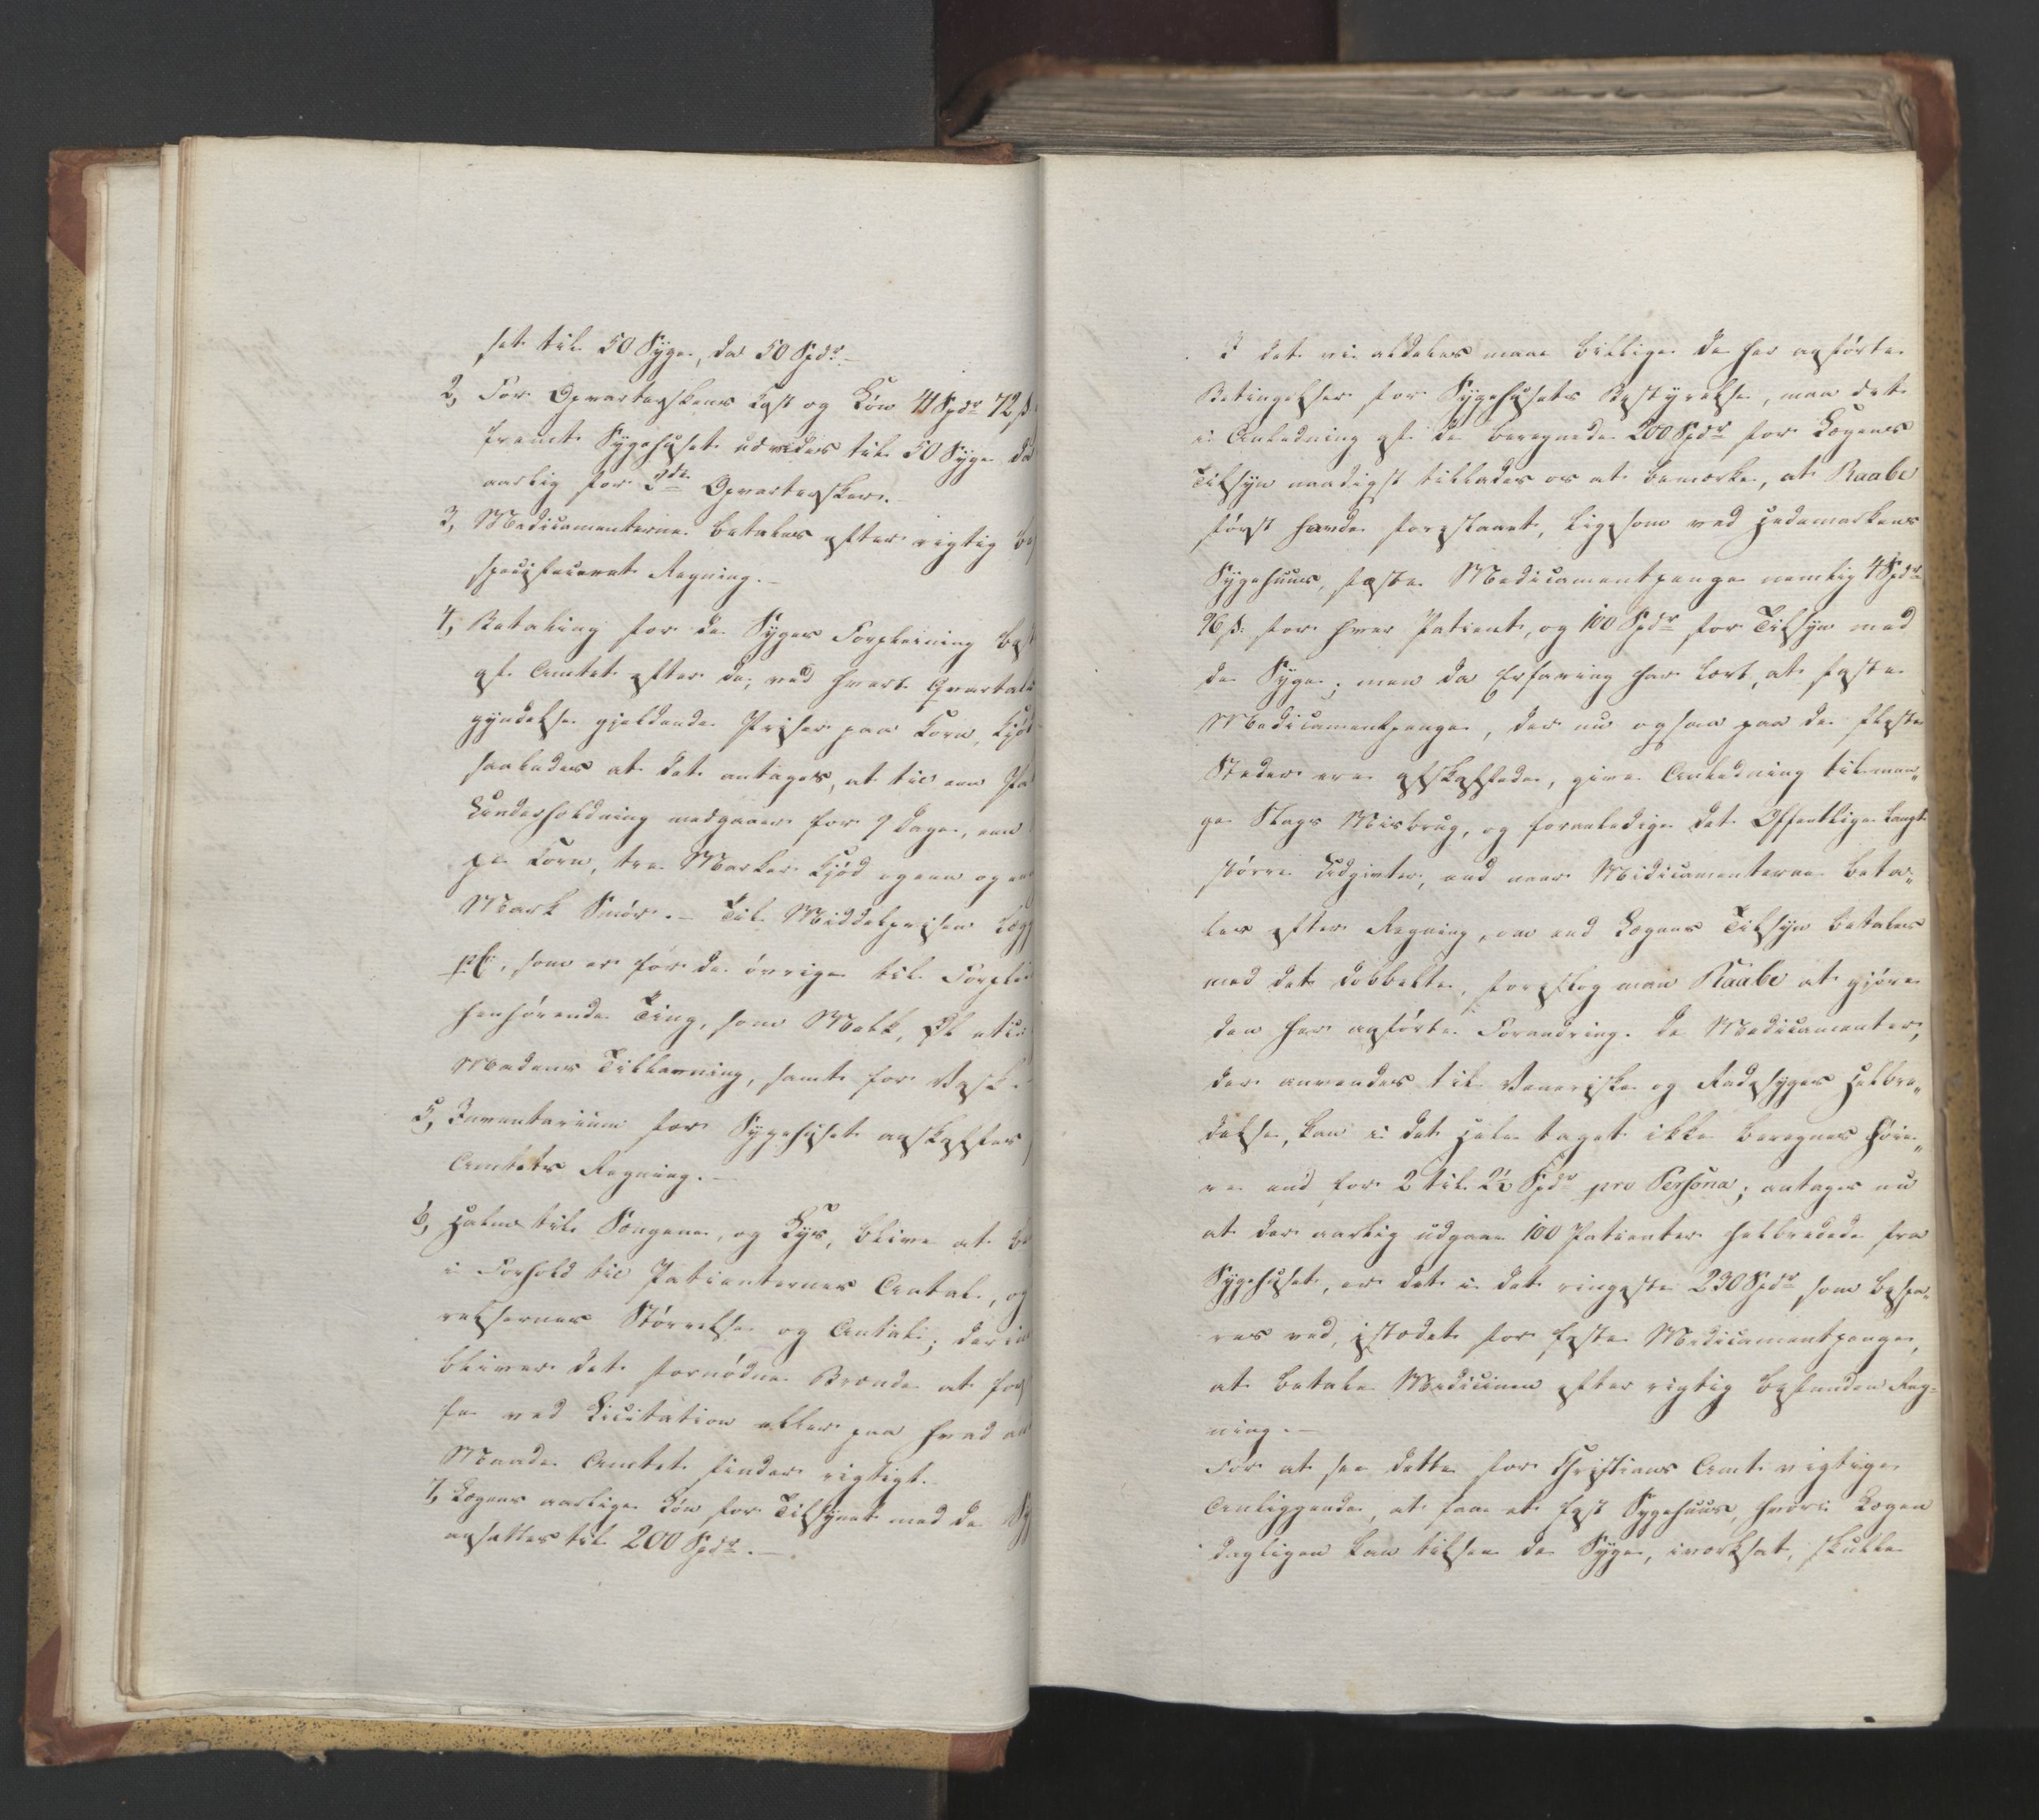 set til 50 Syge, da 50 Spdr. –
2, For Opvarterskens Kost og Løn 41 Spdr 72 ß
fremt Sygehuset udvides til 50 Syge da
aarlig for 2de Opvartersker. –
3, Medicamenterne betales efter rigtig be
specificeret Regning. –
4, Betaling for de Syges Forpleining best
af Amtet efter de, ved hvert Qvartals
gyndelse gjeldende Priser paa Korn, Kjød
saaledes at det antages, at til een Pa
Underholdning medgaaer for 7 Dage, een
pe Korn, tre Marker Kjød og een og en
Mark Smør. – Til Middelprisen lægg
pC, som er for de øvrige til Forplei
henhørende Ting, som Melk, Øl etc:
Madens Tillavning, samt for Vask. –
5, Inventarium for Sygehuset anskaffes
Amtets Regning. –
6, Halm til Sengene, og Lys, blive at be
i Forhold til Patienternes Antal, og
relsernes Størrelse og Antal; der i
bliver det fornødne Brænde at for
fe ved Licitation eller paa hvad an
Maade Amtet finder rigtigt. –
7, Lægens aarlige Løn for Tilsynet med de Sy
ansættes til 200 Spdr. –
I det vi aldeles maae billige de her anførte
Betingelser for Sygehusets Bestyrelse, maa det
i Anledning af de beregnede 200 Spdr for Lægens
Tilsyn naadigst tillades os at bemærke, at Raabe
først havde foreslaaet, ligesom ved Hedemarkens
Sygehuus, faste Medicamentpenge nemlig 4 Spdr
96 ß: for hver Patient, og 100 Spdr for Tilsyn med
de Syge; men da Erfaring har lært, at faste
Medicamentpenge, der nu ogsaa paa de fleste
Steder ere afskaffede, give Anledning til man„
ge Slags Misbrug, og foranledige det Offentlige langt
større Udgivter, end naar Midicamenterne beta„
les efter Regning, om end Lægens Tilsyn betales
med det dobbelte, foreslog man Raabe at gjøre
den her anførte Forandring. De Medicamenter,
der anvendes til Veneriske og Radesyges Helbre„
delse, kan i det Hele taget ikke beregnes høie„
re end for 2 til 2½ Spdr pro Persona; antages nu
at der aarlig udgaae 100 Patienter helbredede fra
Sygehuset, er det i det ringeste 230 Spdr som bespa„
res ved, istædet for faste Medicamentpenge,
at betale Medicinen efter rigtig befunden Reg„
ning. –
For at see dette for Christians Amt vigtige
Anliggende, at faae et fast Sygehuus, hvori Lægen
dagligen kan tilsee de Syge, iværksat, skulle